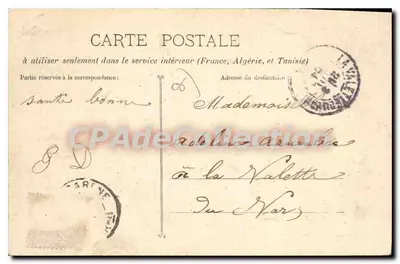 CARTE POSTALE
à utiliser seulement dans le service intérieur (France, Algérie, et Tunisie)
Partie réservée à la correspondance:
Adresse du destinataire
santé bonne
Mademois
CPAdeCollection
à la Valette
du Var